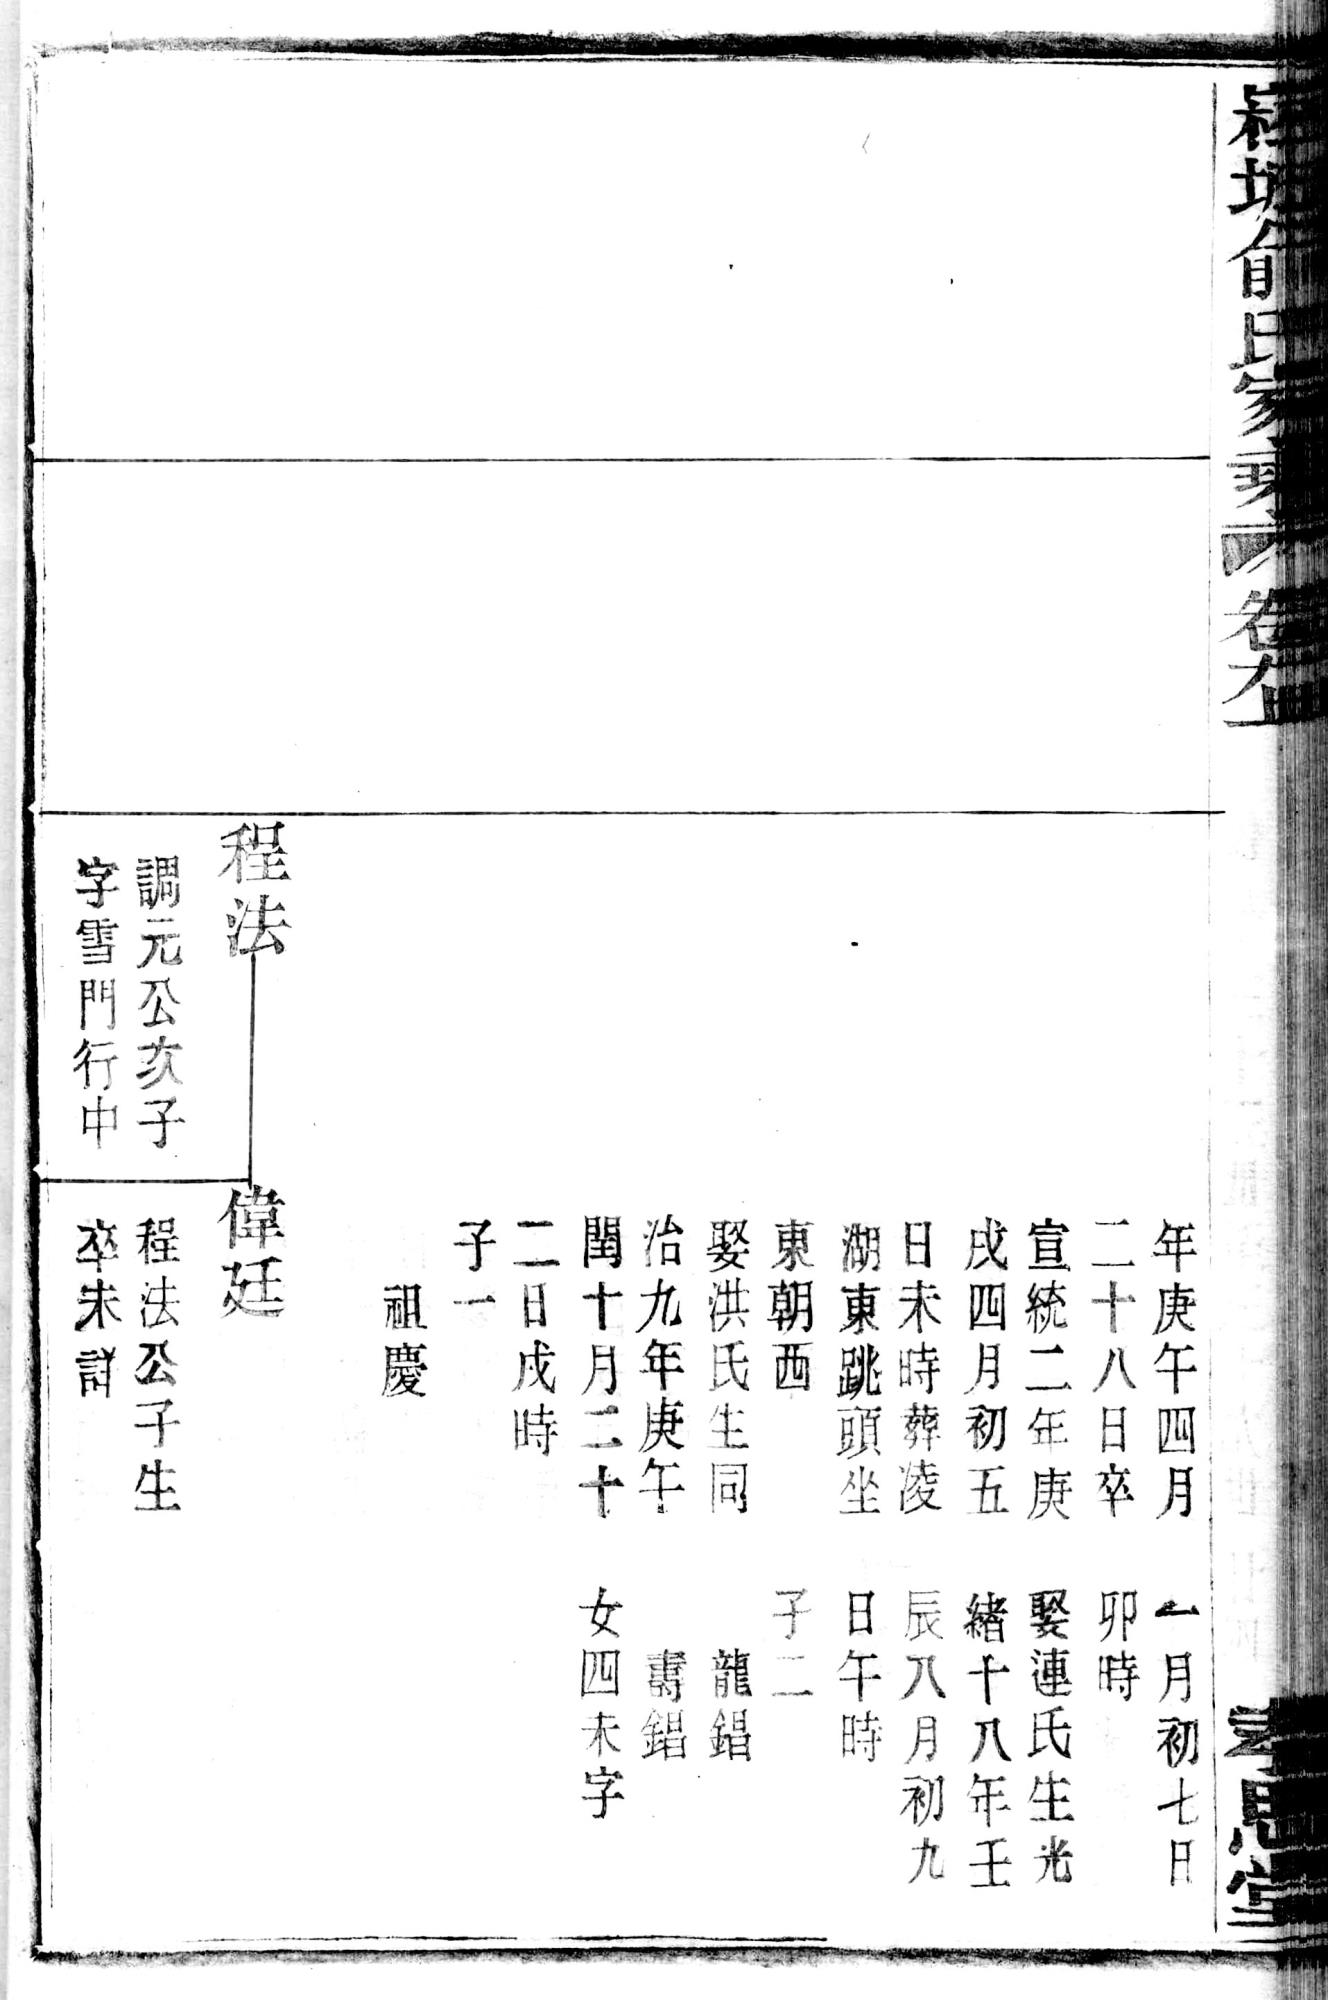 俞氏家乘
卷九上
孝思堂
年庚午四月
二十八日卒
宣統二年庚
戌四月初五
日未時葬凌
湖東跳頭坐
東朝西
娶洪氏生同
治九年庚午
閏十月二十
二日戌時
子一
祖慶
一月初七日
卯時
娶連氏生光
緒十八年壬
辰八月初九
日午時
子二
龍錩
壽錩
女四未字
程法
調元公次子
字雪門行中
偉廷
程法公子生
卒未詳